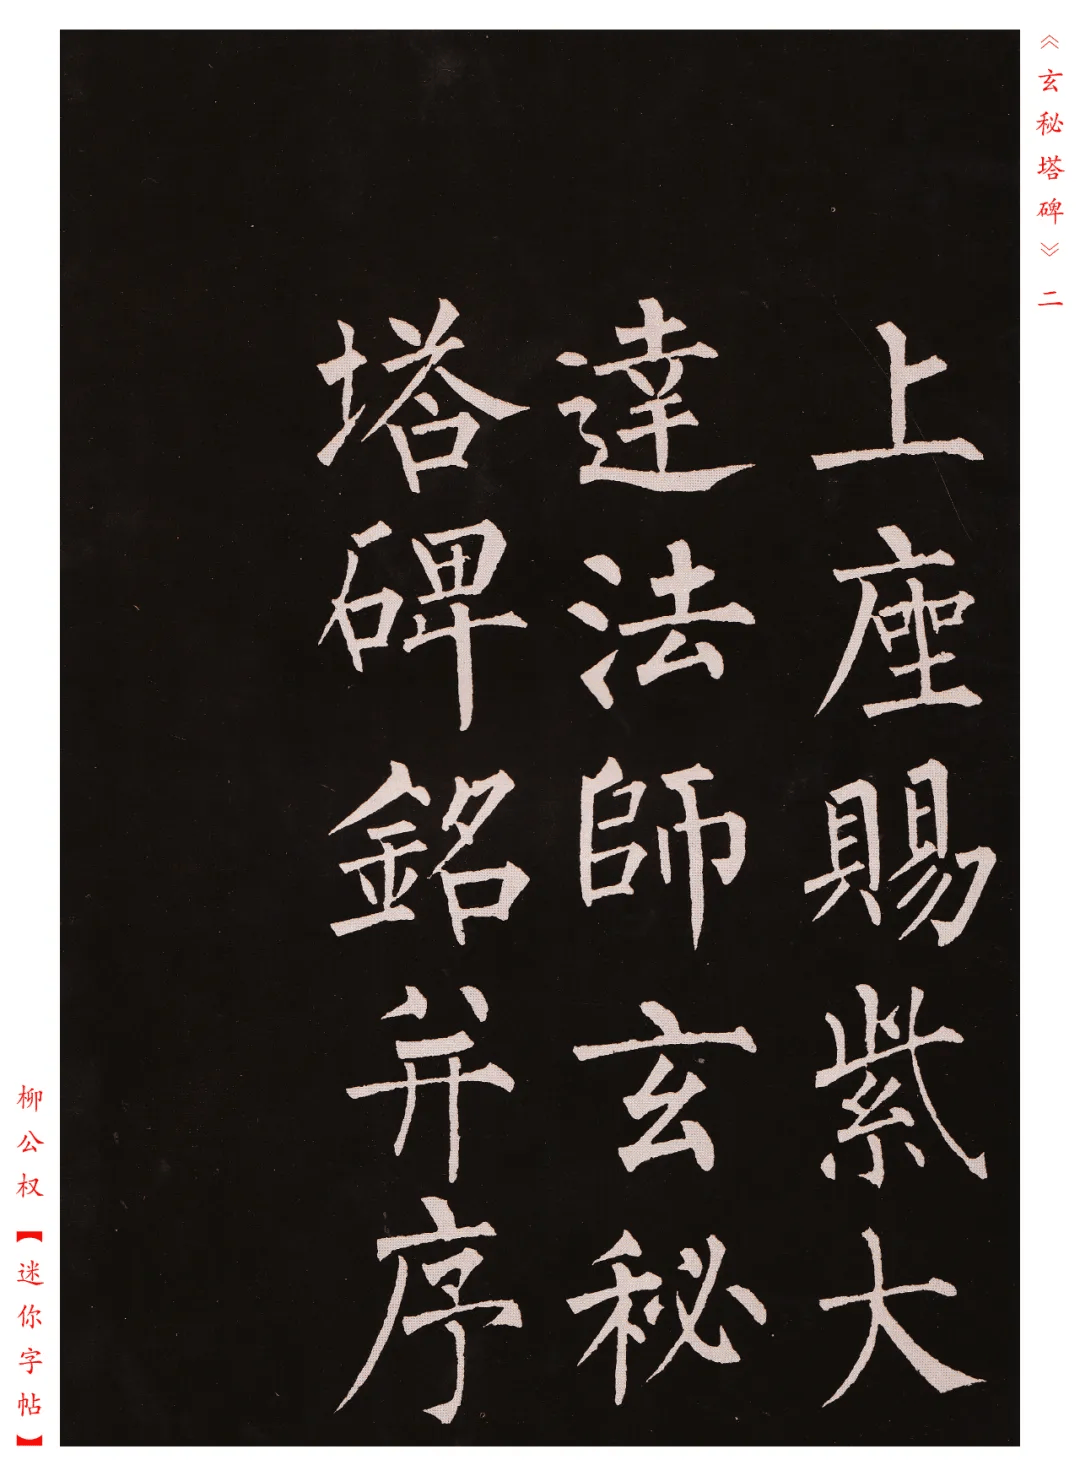 《玄秘塔碑》二
上座賜紫大
達法師玄秘
塔碑銘并序
柳公权【迷你字帖】